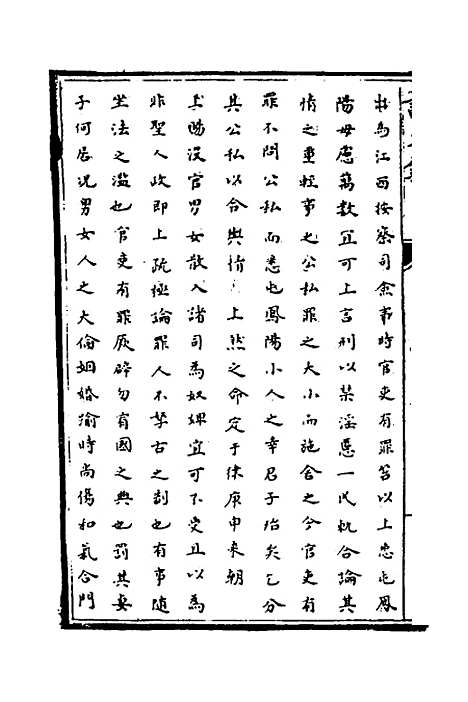 擢爲江西按察司僉事時官吏有罪笞以上悉屯鳳
陽毋慮萬數宜可上言刑以禁淫慝一民軌合論其
情之重輕事之公私罪之大小而施舍之今官吏有
罪不問公私而悉屯鳳陽小人之幸君子殆矣乞分
其公私以合輿情上然之命定于律庚申來朝
上賜没官男女散入諸司為奴婢宜可不受且以為
非聖人政即上疏極論罪人不孥古之制也有事随
坐法之濫也官吏有罪厥辟勿有國之典也罰其妻
子何居况男女人之大倫姻婚渝時尚傷和氣合門